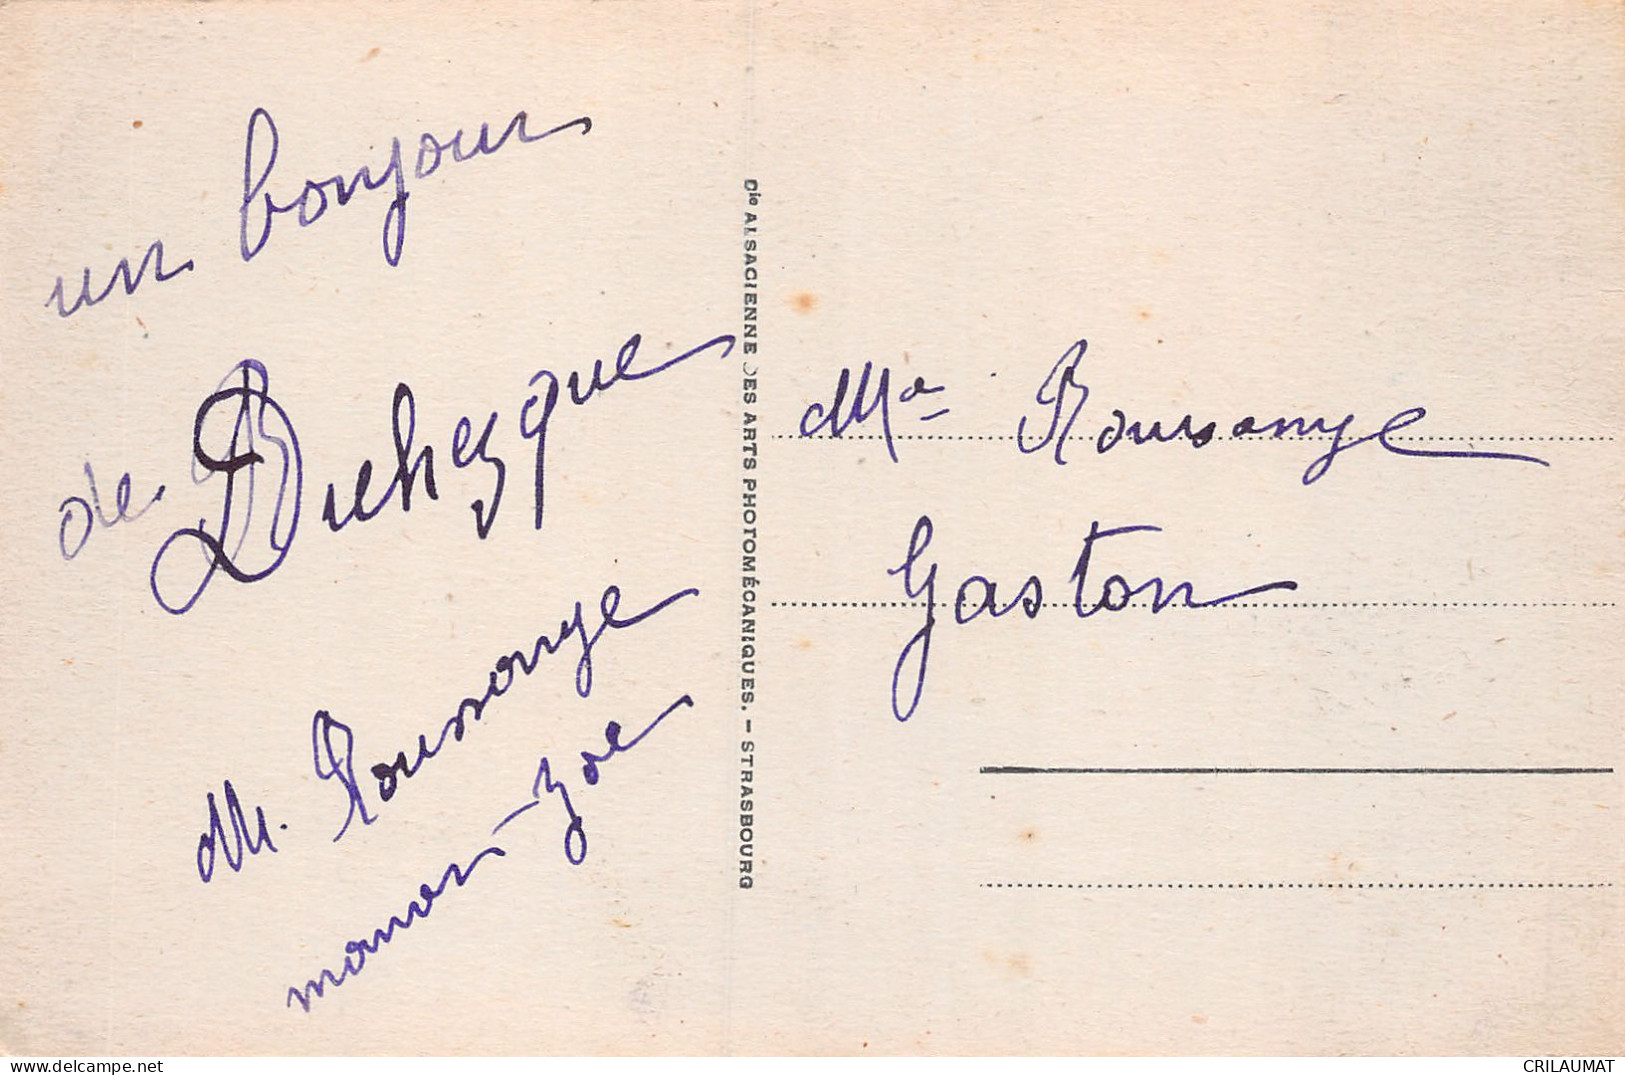 un bonjour
de Duhezque
M. Roussange
maner-zoe
Cie ALSACIENNE DES ARTS PHOTOMÉCANIQUES. – STRASBOURG
Me Roussange
Gaston
www.delcampe.net
CRILAUMAT